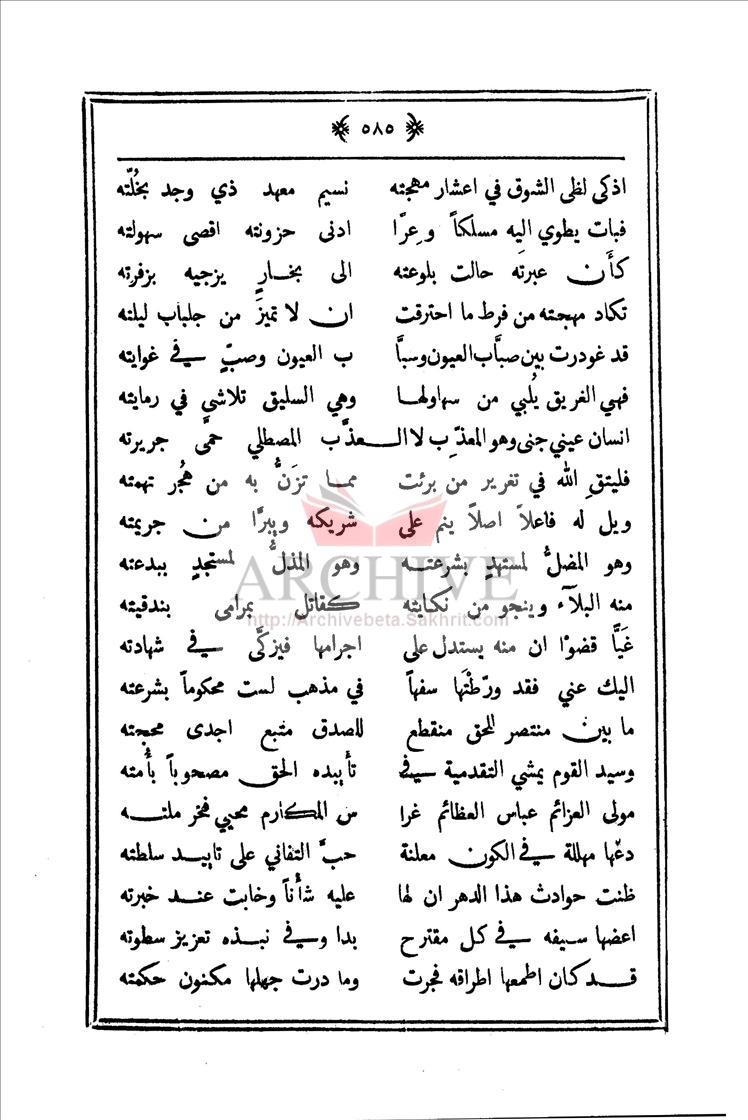 ٥٨٥
اذكى لظى الشوق في اعشار مهجته نسيم معهد ذي وجد بخُلّته
فبات يطوي اليه مسلكاً وعِرًا ادنى حزونته اقصى سهولته
كأن عبرتَه حالت بلوعته الى بخارٍ يزجيه بزفرته
تكاد مهجته من فرط ما احترقت ان لا تميزَ من جلباب ليلته
قد غودرت بين صبَّاب العيون وسبَّا ب العيون وصبٍّ في غوايته
فهي الغريق يُلبي من سهاولها وهي السليق تلاشي في رمايته
انسان عيني جنى وهو المعذّب لا العذَّب المصطلي حمَّى جريرته
فليتقِ الله في تغرير من برئت مما تزَنُّ به من هُجر تهمته
ويل له فاعلاً اصلاً ينم على شريكه ويبرَّا من جريمته
وهو المضلُّ لمستهدٍ بشرعته وهو المذلُّ لمستجدٍ ببدعته
منه البلآء وينجو من نكايته كقاتل بمرامى بندقيته
غيًّا قضوْا ان منه يستدل على اجرامها فيزكَّى في شهادته
اليك عني فقد ورّطْتَها سفهاً في مذهب لست محكوماً بشرعته
ما بين منتصر للحق منقطع للصدق متبع اجدى محجته
وسيد القوم يمشي التقدمية في تأييده الحق مصحوباً بأمته
مولى العزائم عباس العظائم غرا س المكارم محيي فخر ملته
دعْها مهللة في الكون معلنة حبَّ التفاني على تاييد سلطته
ظنت حوادث هذا الدهر ان لها عليه شأناً وخابت عند خبرته
اعضها سيفه في كل مقترح بدا وفي نبذه تعزيز سطوته
قد كان اطمعها اطراقه فجرت وما درت جهلها مكنون حكمته
ARCHIVE
http://Archivebeta.Sakhrit.com